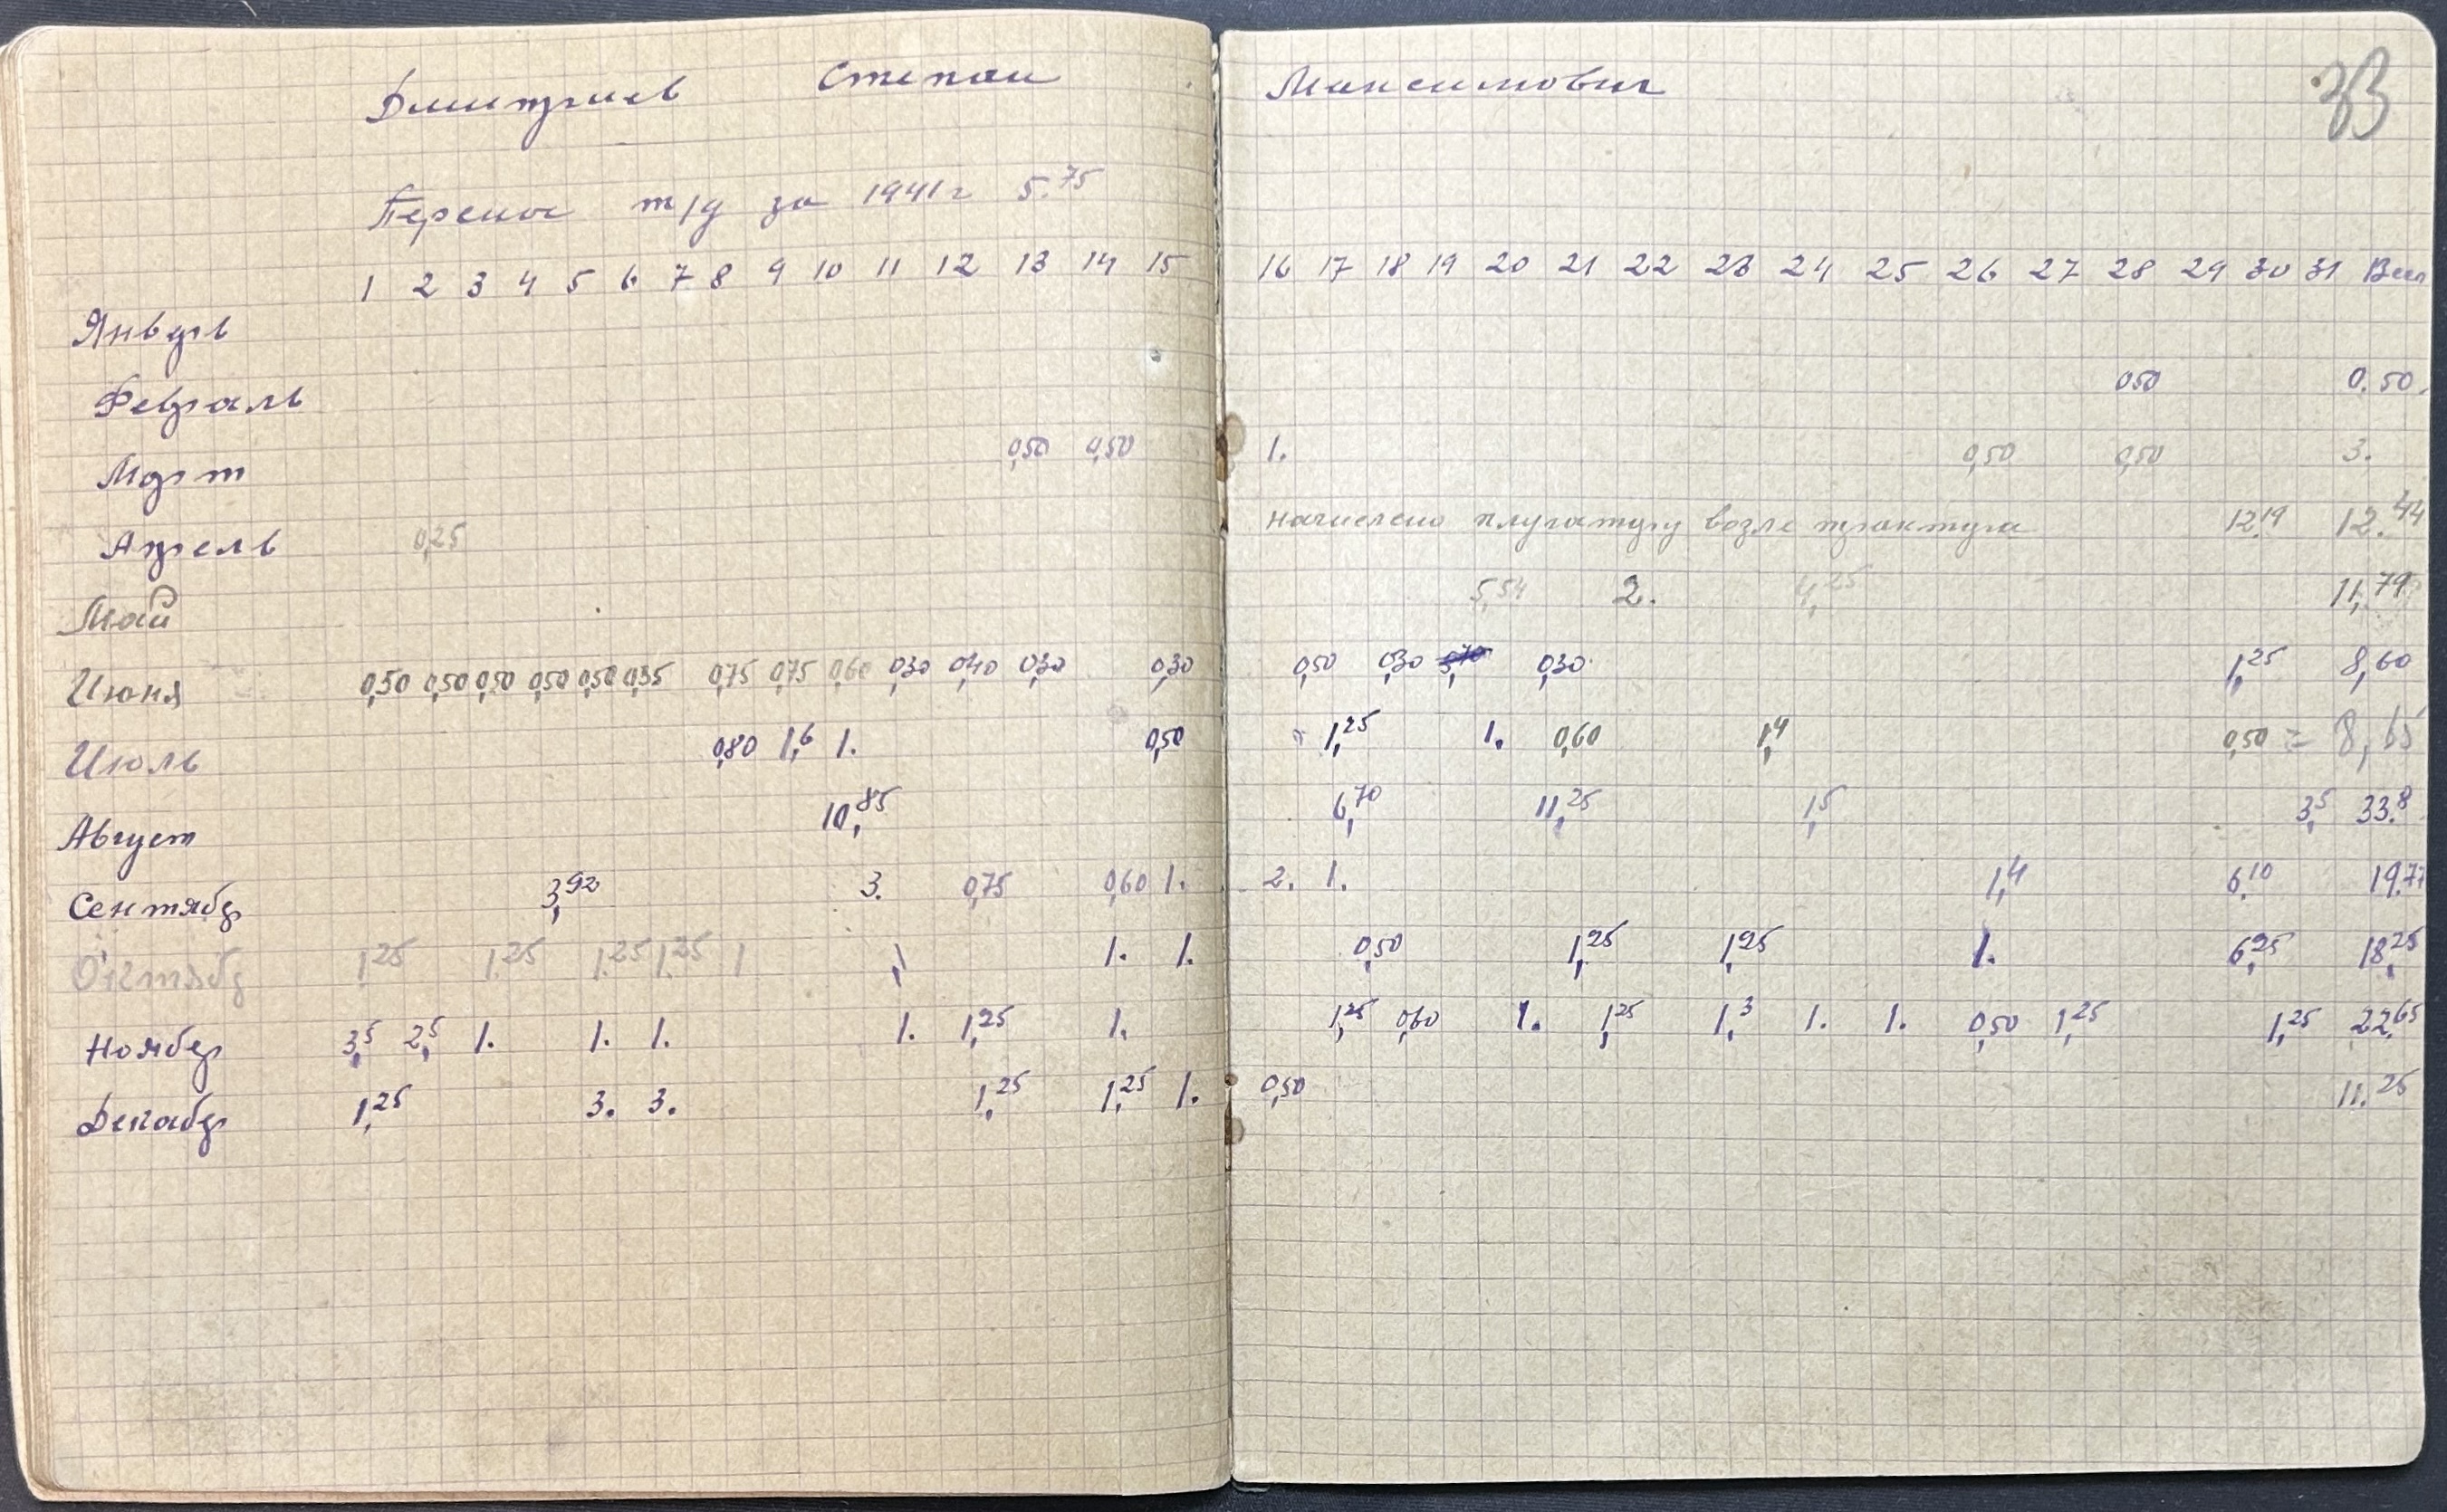 Дмитриев Степан Максимович 33
Перенос т/д за 1941 г 5.75
1 2 3 4 5 6 7 8 9 10 11 12 13 14 15 16 17 18 19 20 21 22 23 24 25 26 27 28 29 30 31 Всег
Январь
Февраль 0,50 0.50.
Март 0,50 0,50 1. 0,50 0,50 3.
Апрель 0,25 начислено плугатуру возле трактура 12.19 12.44
Май 5,54 2. 4,25 11,79
Июня 0,50 0,50 0,50 0,50 0,50 0,35 0,75 0,75 0,60 0,30 0,40 0,30 0,30 0,50 0,30 0,30 1,25 8,60
Июль 0,80 1,6 1. 0,50 1,25 1. 0,60 1,4 0,50 = 8,65
Август 10,85 6,70 11,25 1,5 3,5 33.8
Сентябр 3,92 3. 0,75 0,60 1. 2. 1. 1,4 6.10 19.77
Октябр 1,25 1.25 1.25 1.25 1 1. 1. 0,50 1,25 1,25 1. 6,25 18,25
Ноябер 3,5 2,5 1. 1. 1. 1. 1,25 1. 1,25 0,60 1. 1,25 1,3 1. 1. 0,50 1,25 1,25 22.65
Декабр 1,25 3. 3. 1,25 1,25 1. 0,50 11.25